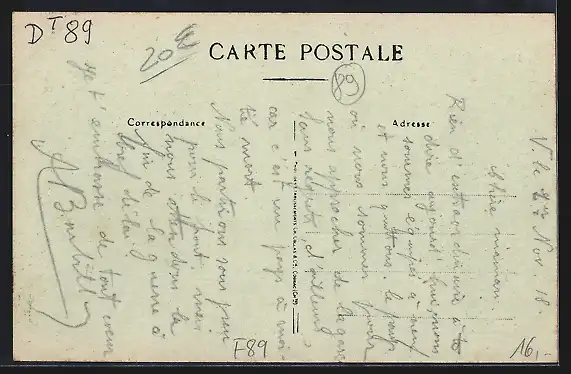 DT 89
20
CARTE POSTALE
89
Correspondance
Adresse
V. le 27 Nov 18.
Chère maman.
Rien d'extraordinaire à te
dire aujourd'hui, nous
sommes équipés à neuf
et nous quittons le pays
où nous sommes pour
nous rapprocher de la gare
sans regrets d'ailleurs,
car c'est un pays à moi-
tié mort.
Nous partirons sans peine
pour le front, mais
nous attendons la
fin de la guerre à
bref délai
Je t'embrasse de tout coeur
F89
16,-